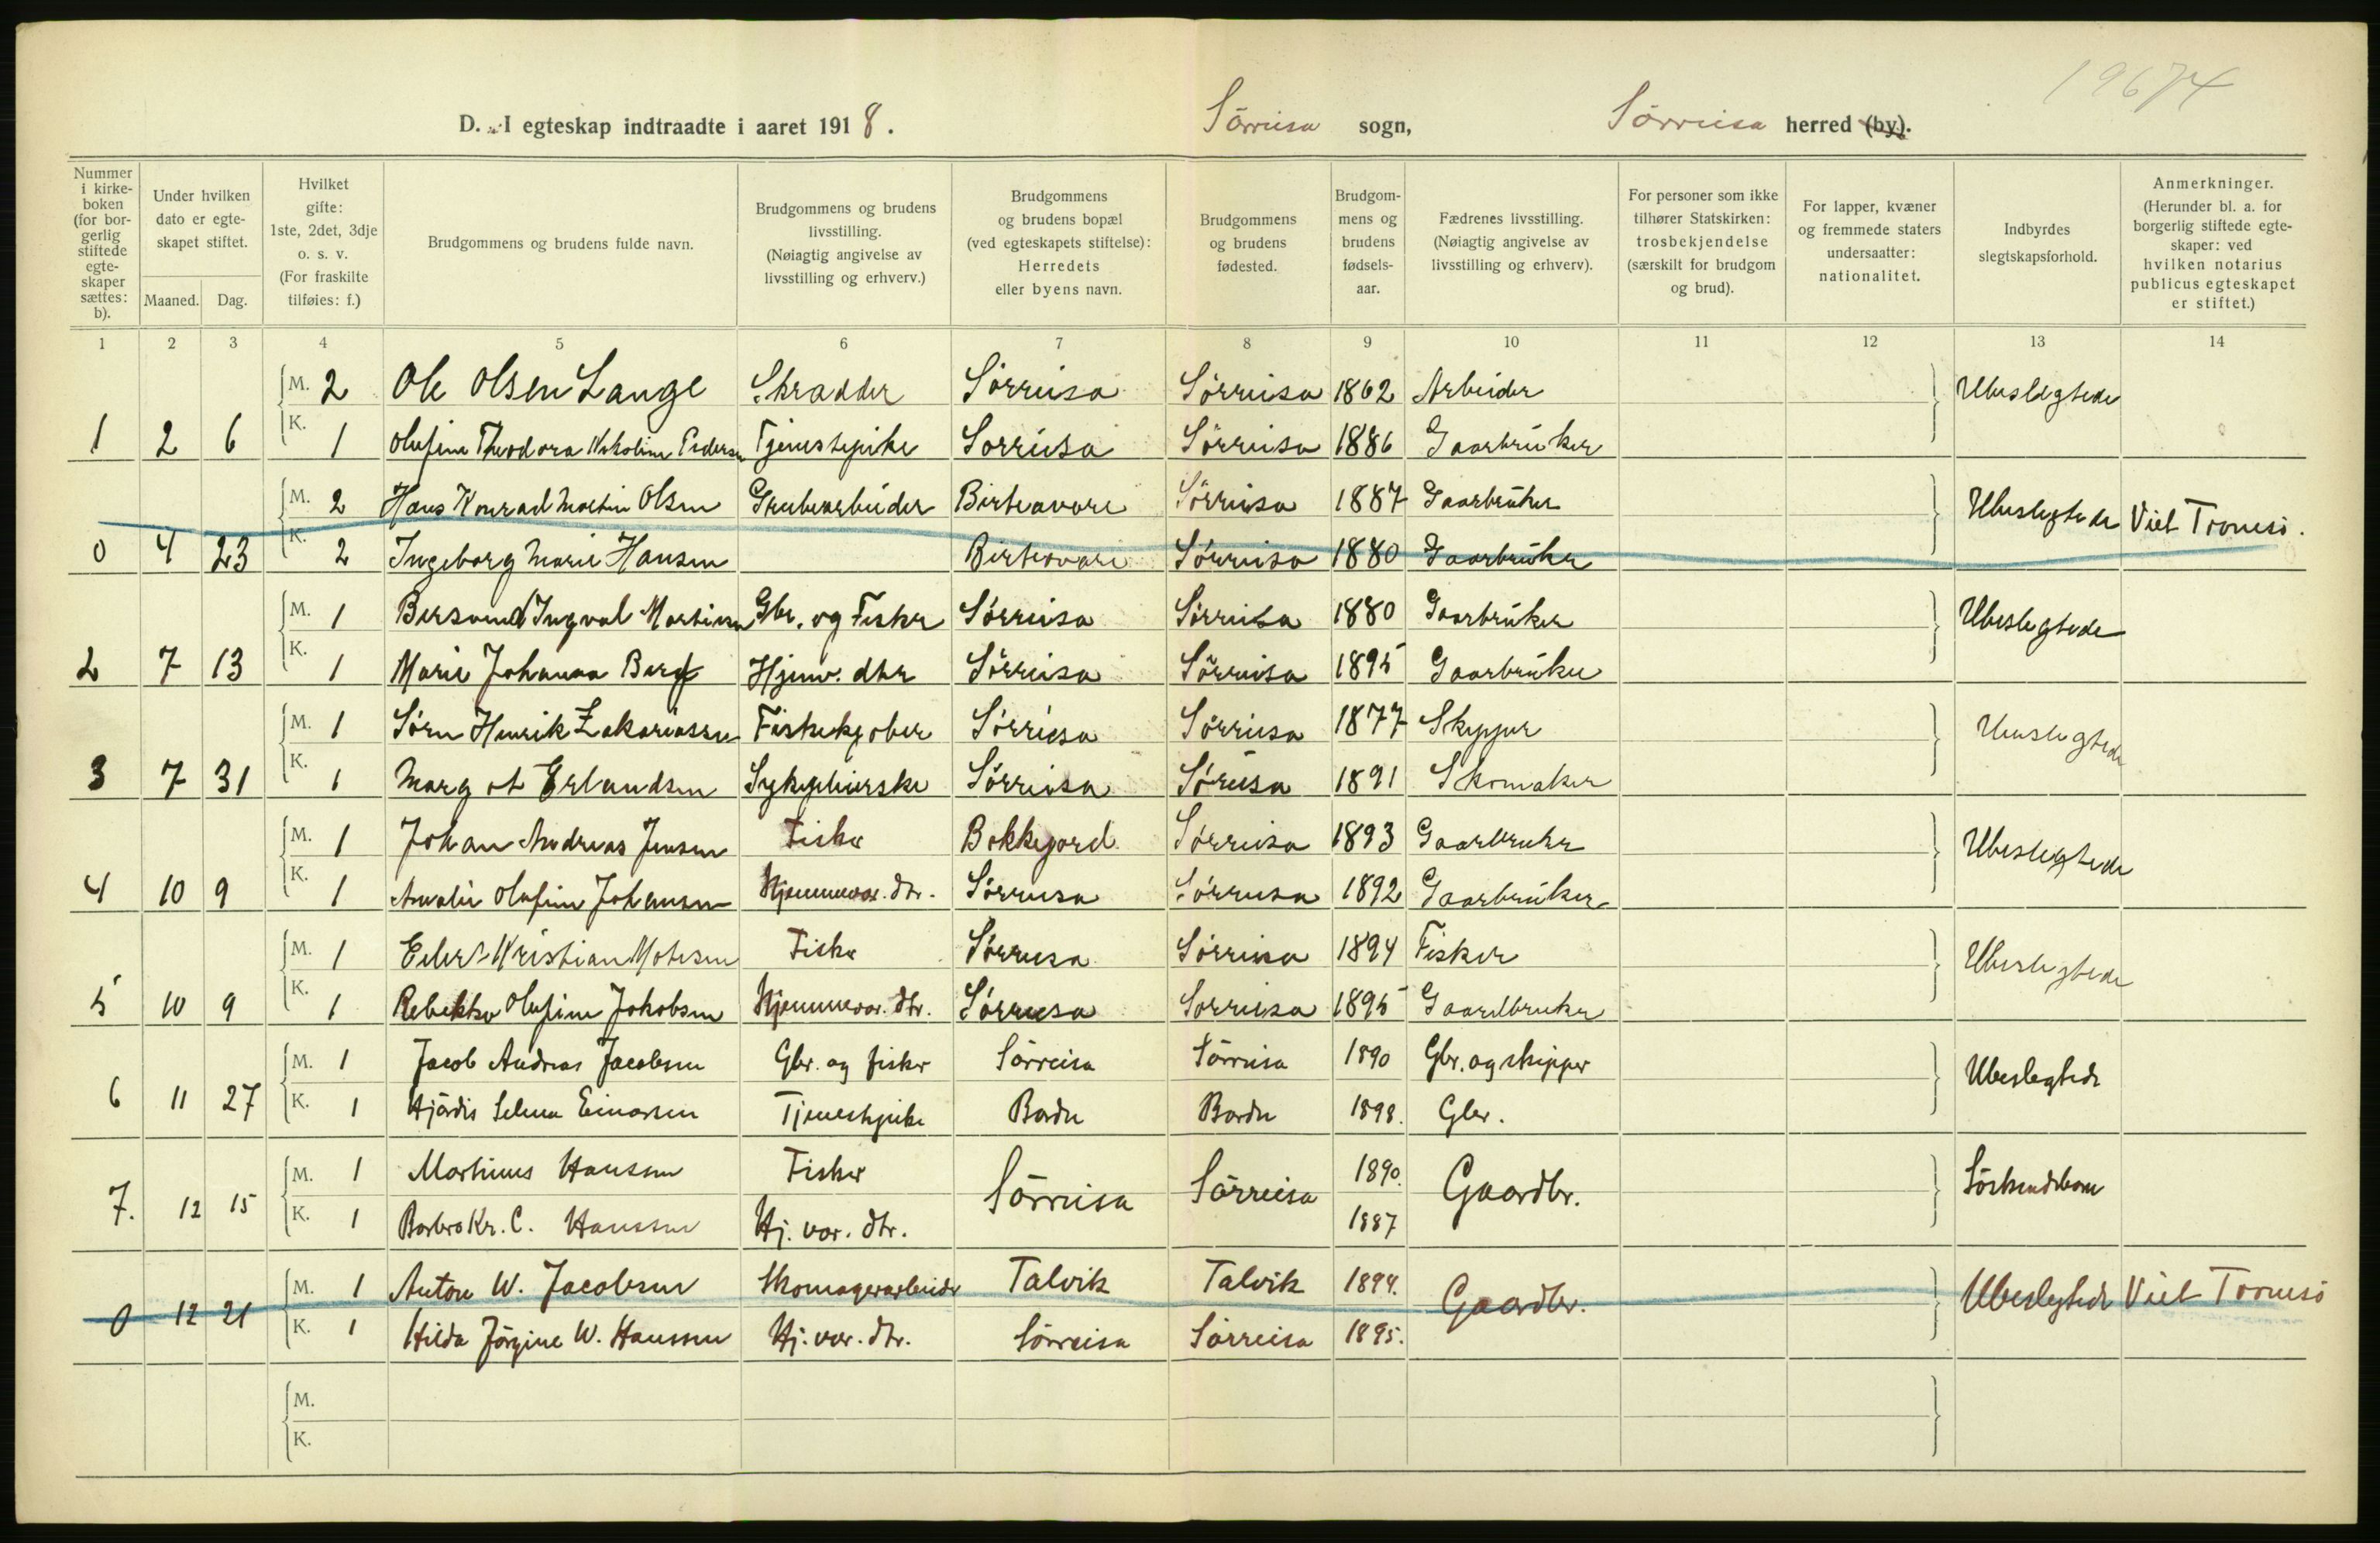 19674
D. I egteskap indtraadte i aaret 1918. Sörreisa sogn, Sörreisa herred (by).
Nummer i kirke-boken (for bor-gerlig stiftede egte-skaper sættes: b).
Under hvilken dato er egte-skapet stiftet.
Maaned. Dag.
Hvilket gifte: 1ste, 2det, 3dje o. s. v. (For fraskilte tilføies: f.)
Brudgommens og brudens fulde navn.
Brudgommens og brudens livsstilling. (Nøiagtig angivelse av livsstilling og erhverv.)
Brudgommens og brudens bopæl (ved egteskapets stiftelse): Herredets eller byens navn.
Brudgommens og brudens fødested.
Brudgom-mens og brudens fødsels-aar.
Fædrenes livsstilling. (Nøiagtig angivelse av livsstilling og erhverv).
For personer som ikke tilhører Statskirken: trosbekjendelse (særskilt for brudgom og brud).
For lapper, kvæner og fremmede staters undersaatter: nationalitet.
Indbyrdes slegtskapsforhold.
Anmerkninger. (Herunder bl. a. for borgerlig stiftede egte-skaper: ved hvilken notarius publicus egteskapet er stiftet.)
1 2 3 4 5 6 7 8 9 10 11 12 13 14
M. 2 Ole Olsen Lange Skradder Sörreisa Sörreisa 1862 Arbeider Ubeslegtede
1 2 6 K. 1 Olufine Theodora Nikoline Pedersen Tjenestepike Sorreisa Sörreisa 1886 Gaarbruker
M. 2 Hans Konrad Martin Olsen Grubearbeider Birtavare Sörreisa 1887 Gaarbruker Ubeslegtede Viet Tromsö.
0 4 23 K. 2 Ingeborg Marie Hansen Birtavare Sörreisa 1880 Gaarbruker
M. 1 Bersvend Ingval Martinsen Gbr. og Fisker Sörreisa Sörreisa 1880 Gaarbruker Ubeslegtede
2 7 13 K. 1 Marie Johanna Berg Hjemv. dtr Sörreisa Sörreisa 1895 Gaarbruker
M. 1 Sörn Henrik Zakariassen Fiskekjöber Sörreisa Sörreisa 1877 Skipper Ubeslegtede
3 7 31 K. 1 Margot Erlandsen Sykepleierske Sörreisa Söreisa 1891 Skomaker
M. 1 Johan Andreas Jensen Fisker Bakkejord Sörreisa 1893 Gaarbruker Ubeslegtede
4 10 9 K. 1 Amalie Olufine Johansen Hjemmevær. dtr. Sörreisa Sörreisa 1892 Gaarbruker
M. 1 Eilert Kristian Motesen Fisker Sörreisa Sörreisa 1894 Fisker Ubeslegtede
5 10 9 K. 1 Rebekka Olufine Jakobsen Hjemmevær. dtr. Sörreisa Sorreisa 1895 Gaardbruker
M. 1 Jacob Andreas Jacobsen Gbr. og fisker Sörreisa Sörreisa 1890 Gbr. og skipper Ubeslegtede
6 11 27 K. 1 Hjördis Selma Einarsen Tjenestepike Bardu Bardu 1898. Gbr.
M. 1 Martinus Hanssen Fisker Sörreisa Sörreisa 1890. Gaardbr. Söskendebarn
7. 12 15 K. 1 Barbro Kr. C. Hanssen Hj. vær. dtr. 1887
M. 1 Anton W. Jacobsen Skomagerarbeider Talvik Talvik 1894. Gaardbr. Ubeslegtede Viet Tromsö
0 12 21 K. 1 Hilda Jörgine W. Hanssen Hj. vær. dtr. Sörreisa Sörreisa 1895.
M.
K.